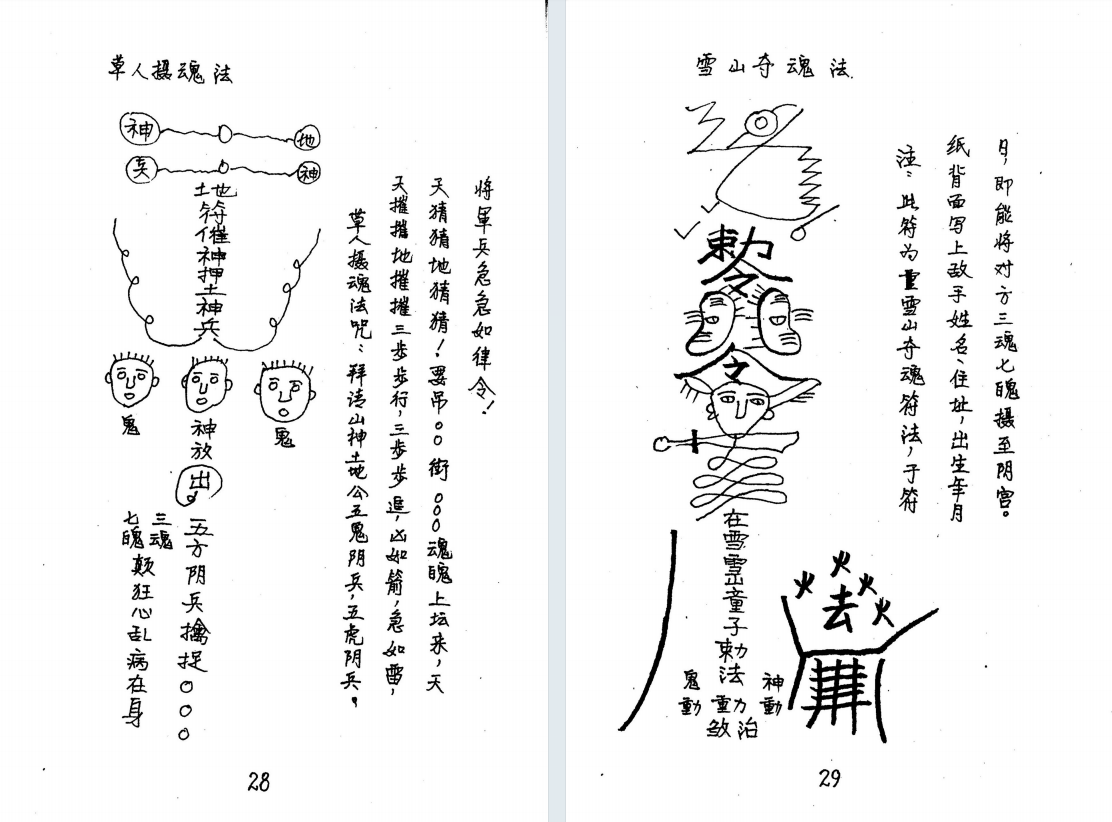 草人摄魂法
神 地
神
土地符催神押土神兵
鬼
神放出
鬼
五方阴兵擒捉○○○
三魂
七魄
颠狂心乱病在身
草人摄魂法咒:拜请山神土地公五鬼阴兵,五虎阴兵。
天摧摧地摧摧三步步行,三步步進,凶如箭,急如雷,
天猜猜地猜猜!要吊○○街○○○魂魄上坛来,天
将軍兵急急如律令!
28
雪山夺魂法
敕
令
令
在雪雪山童子敕法
鬼動
神動
火火火火
去
注:此符为重雪山夺魂符法,于符
纸背面写上敌手姓名、住址,出生年月
日,即能将对方三魂七魄摄至阴宫。
29